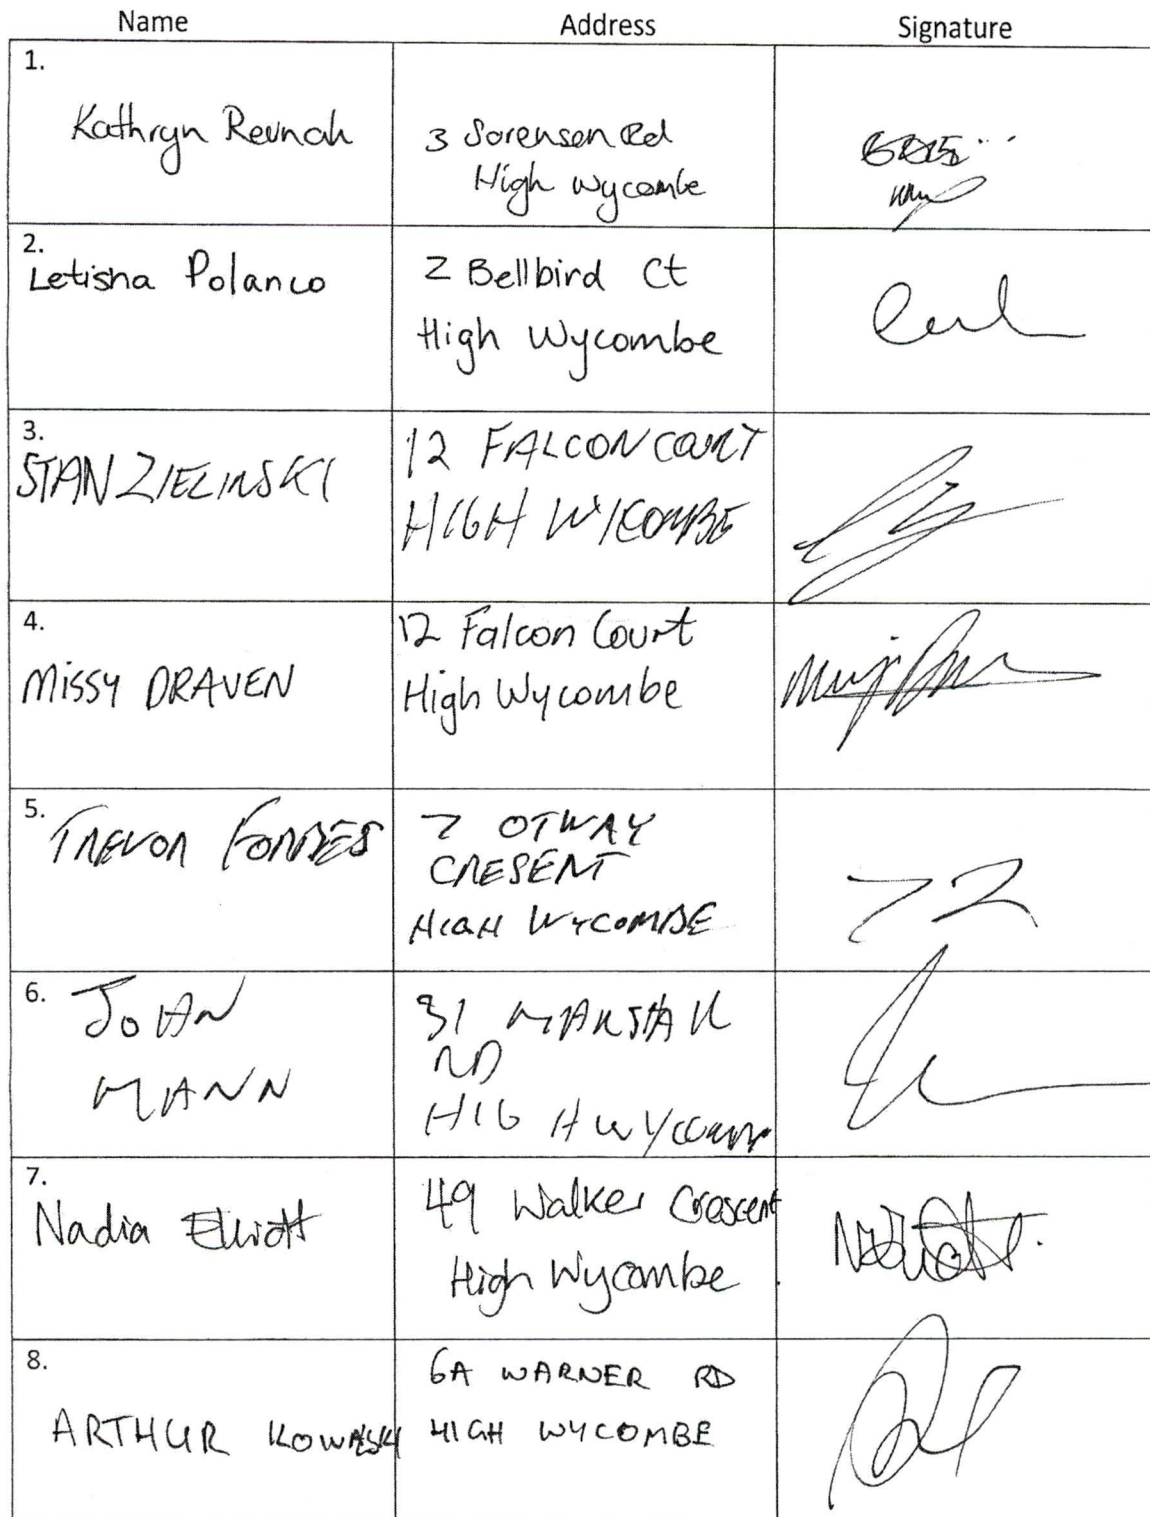 Name Address Signature
1.
Kathryn
3 Sorensen Rd
High Wycombe
2.
Letisha Polanco
2 Bellbird Ct
High Wycombe
3.
STAN ZIELINSKI
12 FALCON COURT
HIGH WYCOMBE
4.
MISSY DRAVEN
12 Falcon Court
High Wycombe
5.
TREVOR FORBES
7 OTWAY
CRESENT
HIGH WYCOMBE
6.
JOHN
MANN
31
RD
HIGH WYCOMBE
7.
Nadia Elliott
49 Walker Crescent
High Wycombe
8.
ARTHUR
6A WARNER RD
HIGH WYCOMBE